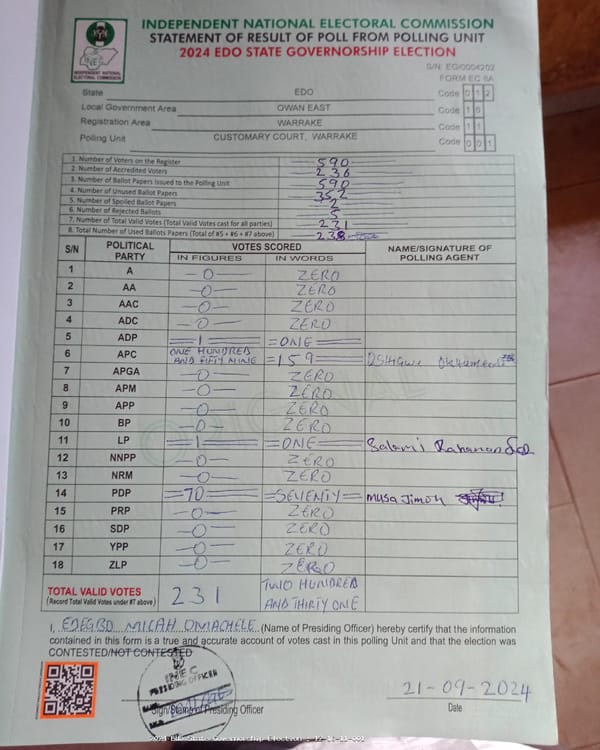 INDEPENDENT NATIONAL ELECTORAL COMMISSION
STATEMENT OF RESULT OF POLL FROM POLLING UNIT
2024 EDO STATE GOVERNORSHIP ELECTION
INEC
INDEPENDENT NATIONAL ELECTORAL COMMISSION
S/N: EG/0004202
FORM EC 8A
State EDO Code 0 1 2
Local Government Area OWAN EAST Code 1 6
Registration Area WARRAKE Code 1 1
Polling Unit CUSTOMARY COURT, WARRAKE Code 0 0 1
1. Number of Voters on the Register 590
2. Number of Accredited Voters 236
3. Number of Ballot Papers Issued to the Polling Unit 590
4. Number of Unused Ballot Papers 352
5. Number of Spoiled Ballot Papers 2
6. Number of Rejected Ballots 5
7. Number of Total Valid Votes (Total Valid Votes cast for all parties) 231
8. Total Number of Used Ballots Papers (Total of #5 + #6 + #7 above) 238
S/N POLITICAL PARTY VOTES SCORED NAME/SIGNATURE OF POLLING AGENT
IN FIGURES IN WORDS
1 A -0- ZERO
2 AA -0- ZERO
3 AAC -0- ZERO
4 ADC -0- ZERO
5 ADP =1= =ONE=
6 APC ONE HUNDRED AND FIFTY NINE =159=
7 APGA -0- ZERO
8 APM -0- ZERO
9 APP -0- ZERO
10 BP -0- ZERO
11 LP =1= =ONE= Salami
12 NNPP -0- ZERO
13 NRM -0- ZERO
14 PDP =70= =SEVENTY= Musa Jimoh
15 PRP -0- ZERO
16 SDP -0- ZERO
17 YPP -0- ZERO
18 ZLP -0- ZERO
TOTAL VALID VOTES 231 TWO HUNDRED
(Record Total Valid Votes under #7 above) AND THIRTY ONE
I, EJEGBO MICAH OMACHELE (Name of Presiding Officer) hereby certify that the information
contained in this form is a true and accurate account of votes cast in this polling Unit and that the election was
CONTESTED/NOT CONTESTED
INEC
PRESIDING OFFICER
21-09-2024
Sign/Stamp of Presiding Officer Date